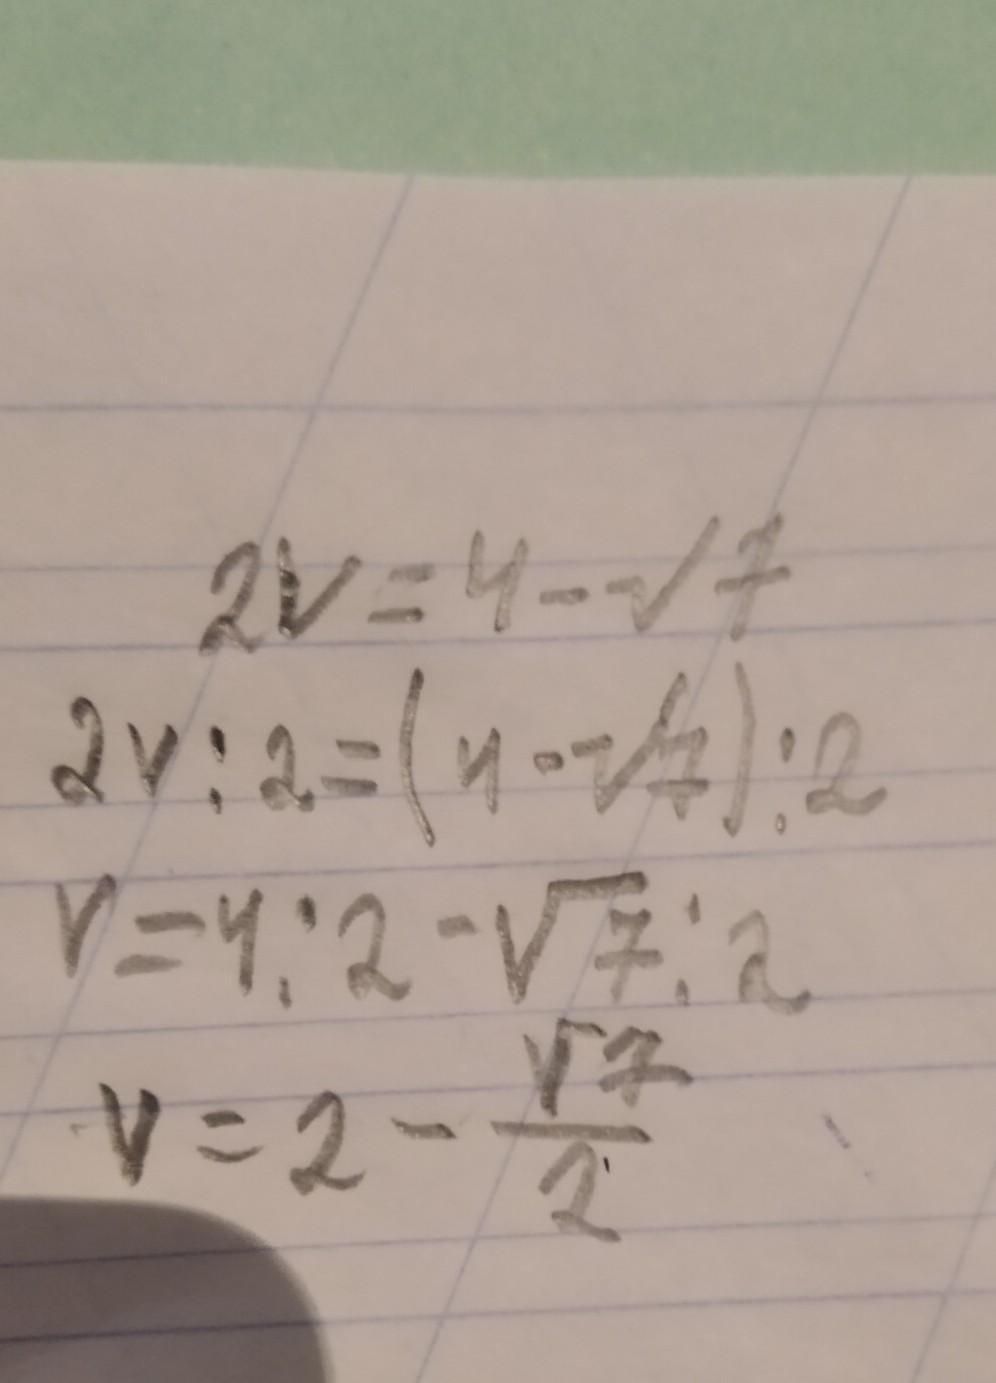 2v = 4 - √7
2v : 2 = (4 - √7) : 2
v = 4 : 2 - √7 : 2
v = 2 - √7/2